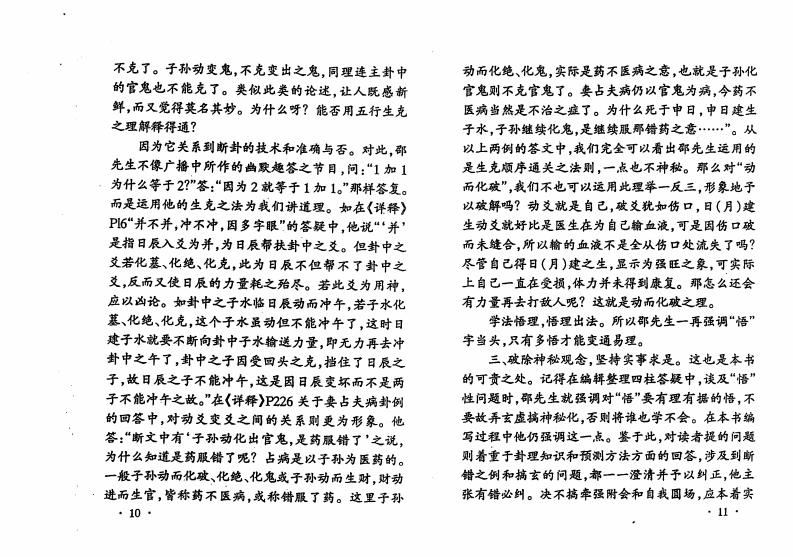 不克了。子孙动变鬼，不克变出之鬼，同理连主卦中
的官鬼也不能克了。类似此类的论述，让人既感新
鲜，而又觉得莫名其妙。为什么呀？能否用五行生克
之理解释得通？
因为它关系到断卦的技术和准确与否。对此，邵
先生不像广播中所作的幽默趣答之节目，问：“1加1
为什么等于2？”答：“因为2就等于1加1。”那样答复。
而是运用他的生克之法为我们讲道理。如在《详释》
P16“并不并，冲不冲，因多字眼”的答疑中，他说“‘并’
是指日辰入爻为并，为日辰帮扶卦中之爻。但卦中之
爻若化墓、化绝、化克，此为日辰不但帮不了卦中之
爻，反而又使日辰的力量耗之殆尽。若此爻为用神，
应以凶论。如卦中之子水临日辰动而冲午，若子水化
墓、化绝、化克，这个子水虽动但不能冲午了，这时日
建子水就要不断向卦中子水输送力量，即无力再去冲
卦中之午了，卦中之子因受回头之克，挡住了日辰之
子，故日辰之子不能冲午，这是因日辰变坏而不是两
子不能冲午之故。”在《详释》P226关于妻占夫病卦例
的回答中，对动爻变爻之间的关系则更为形象。他
答：“断文中有‘子孙动化出官鬼，是药服错了’之说，
为什么知道是药服错了呢？占病是以子孙为医药的。
一般子孙动而化破、化绝、化鬼或子孙动而生财，财动
进而生官，皆称药不医病，或称错服了药。这里子孙
·10·
动而化绝、化鬼，实际是药不医病之意，也就是子孙化
官鬼则不克官鬼了。妻占夫病仍以官鬼为病，今药不
医病当然是不治之症了。为什么死于申日，申日建生
子水，子孙继续化鬼，是继续服那错药之意……”。从
以上两例的答文中，我们完全可以看出邵先生运用的
是生克顺序通关之法则，一点也不神秘。那么对“动
而化破”，我们不也可以运用此理举一反三，形象地予
以破解吗？动爻就是自己，破爻犹如伤口，日（月）建
生动爻就好比是医生在为自己输血液，可是因伤口破
而未缝合，所以输的血液不是全从伤口处流失了吗？
尽管自己得日（月）建之生，显示为强旺之象，可实际
上自己一直在受损，体力并未得到康复。那怎么还会
有力量再去打敌人呢？这就是动而化破之理。
学法悟理，悟理出法。所以邵先生一再强调“悟”
字当头，只有多悟才能变通易理。
三、破除神秘观念，坚持实事求是。这也是本书
的可贵之处。记得在编辑整理四柱答疑中，谈及“悟”
性问题时，邵先生就强调对“悟”要有理有据的悟，不
要故弄玄虚搞神秘化，否则将谁也学不会。在本书编
写过程中他仍强调这一点。鉴于此，对读者提的问题
则着重于卦理知识和预测方法方面的回答，涉及到断
错之例和搞玄的问题，都一一澄清并予以纠正，他主
张有错必纠。决不搞牵强附会和自我圆场，应本着实
·11·